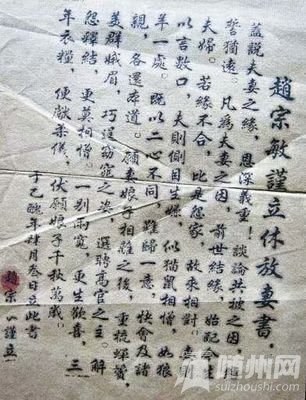 趙宗敏謹立休放妻書,
蓋説夫妻之緣,恩深義重!談論共被之因,結
誓猶遠。凡為夫妻之因,前世結緣,始配
夫婦。若緣不合,比是怨家,故來相對。妻則
以言數口,夫則側目生嫌,似猫鼠相憎,如狼
羊一處。既以二心不同,難歸一意,快會及諸
親,各還本道。願妻娘子相離之後,重梳嬋鬢,
美群娥眉,巧逞窈窕之姿,選聘高官之主。解
怨釋結,更莫相憎。一別兩寬,更生歡喜。三
年衣糧,便獻柔儀,伏願娘子千秋萬歲!
于乙酉年肆月叁日立此書
趙宗 謹立
隨州网
suizhoushi.com